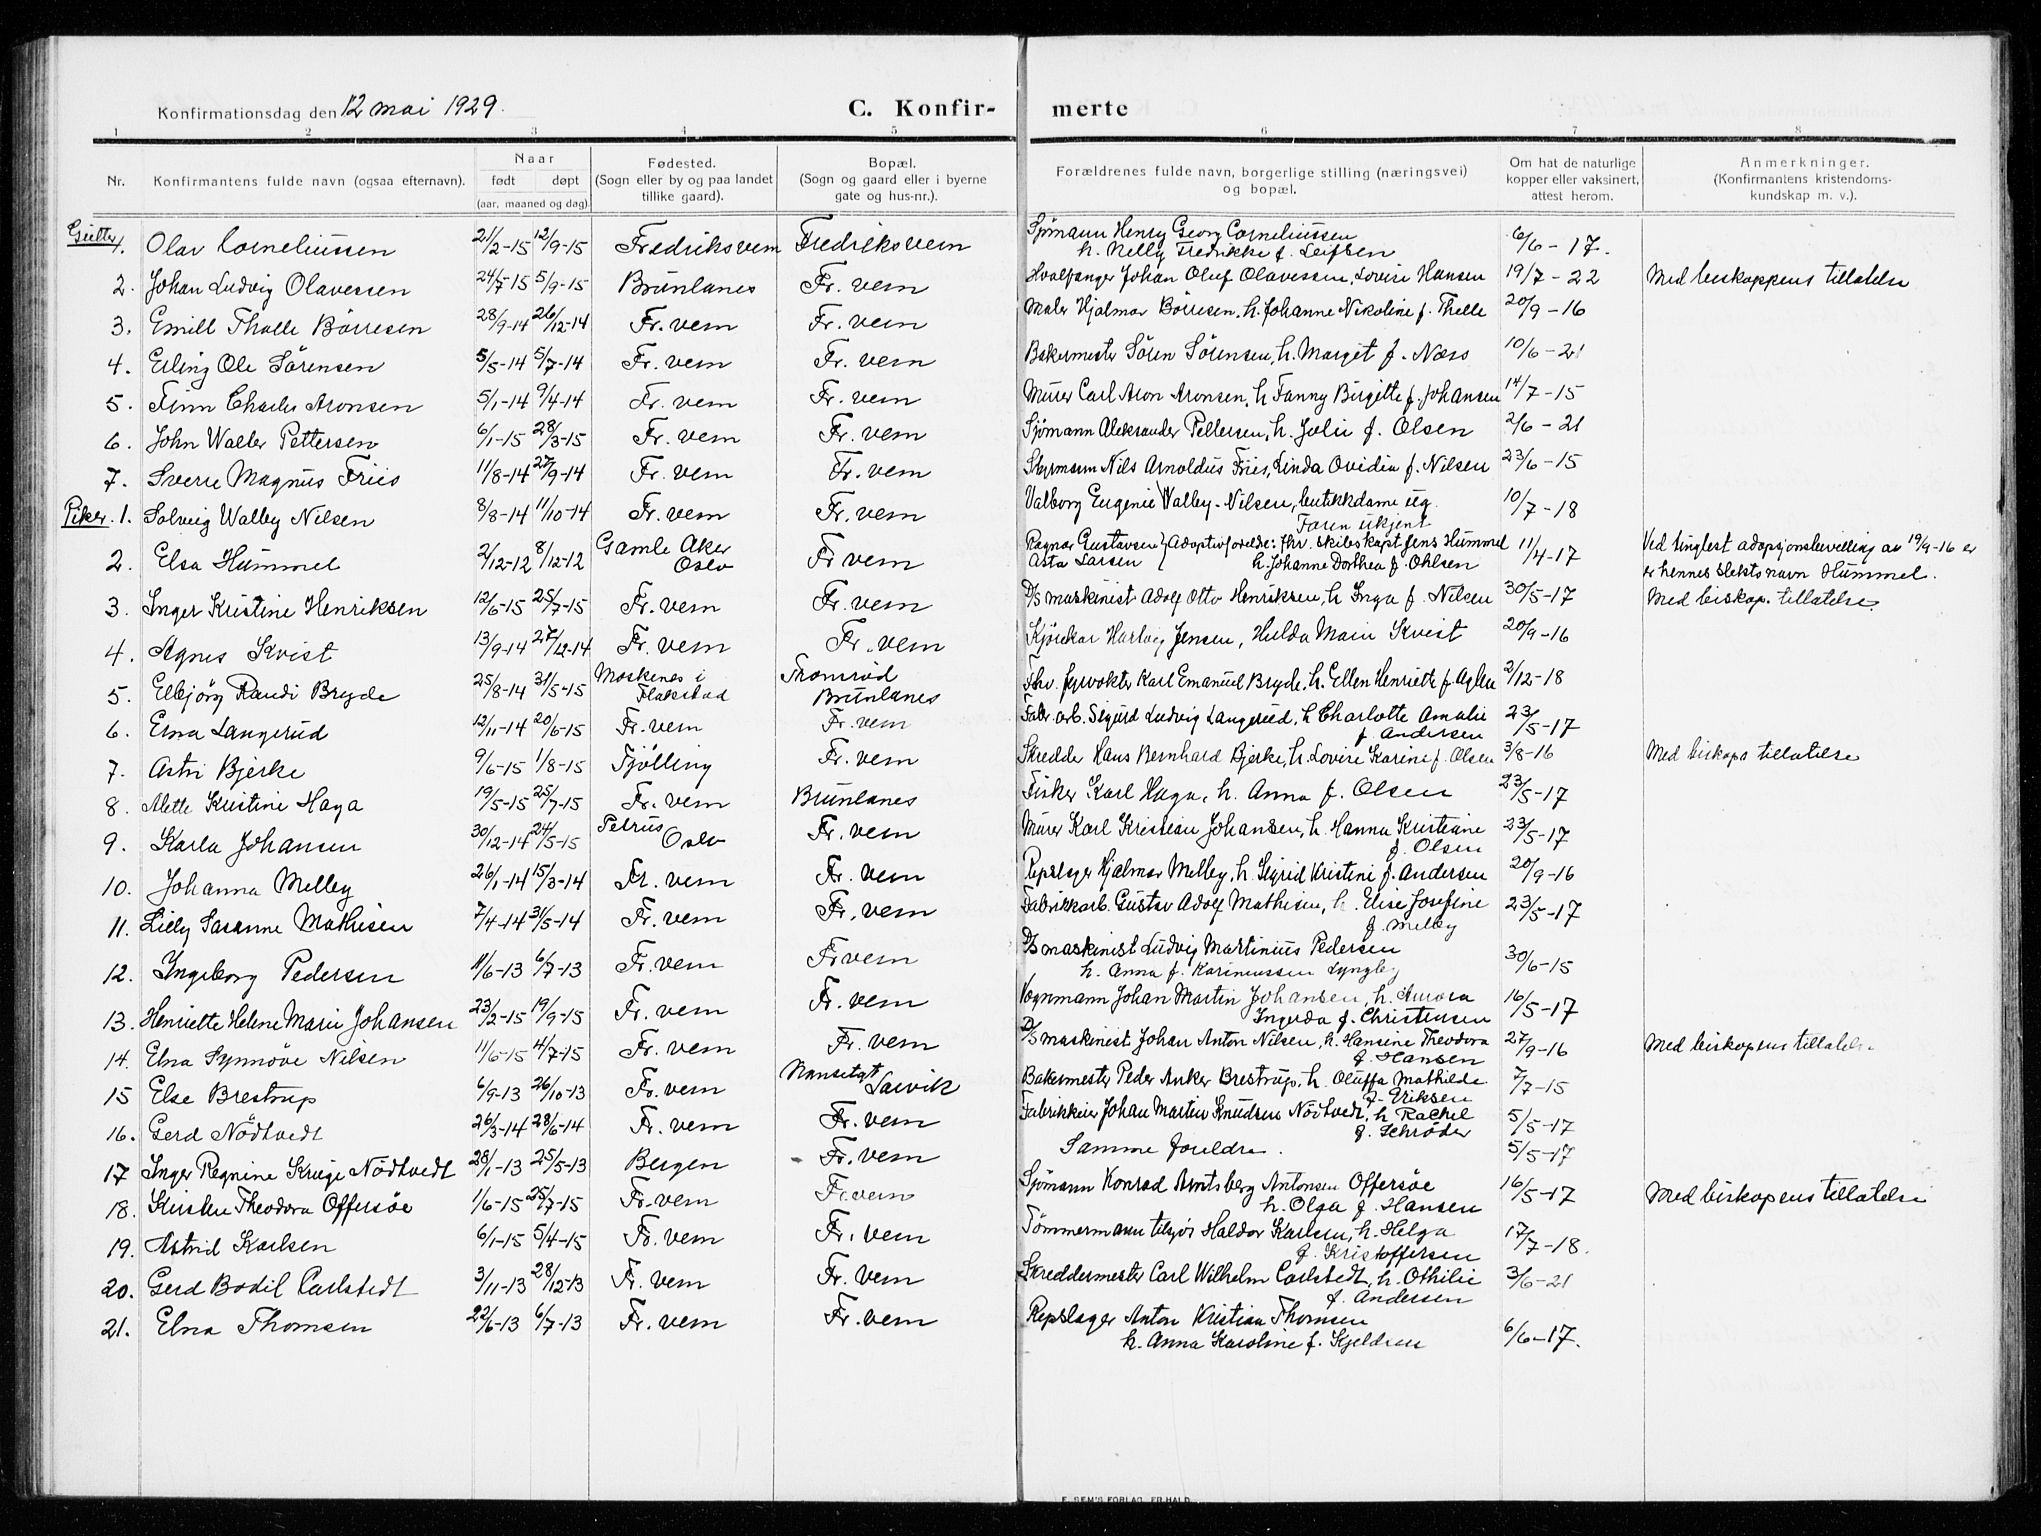 Konfirmationsdag den 12 mai 1929. C. Konfir- merte
1 2 3 4 5 6 7 8
Nr. Konfirmantens fulde navn (ogsaa efternavn). Naar født døpt (aar, maaned og dag). Fødested. (Sogn eller by og paa landet tillike gaard). Bopæl. (Sogn og gaard eller i byerne gate og hus-nr.). Forældrenes fulde navn, borgerlige stilling (næringsvei) og bopæl. Om hat de naturlige kopper eller vaksinert, attest herom. Anmerkninger. (Konfirmantens kristendoms- kundskap m. v.).
Gutter
1. Olav Corneliussen 21/2-15 12/9-15 Fredriksvern Fredriksvern Sjømann Henry Georg Corneliussen 6/6-17.
h. Nelly Fredrikke f. Leifsen
2. Johan Ludvig Olavessen 24/7-15 5/9-15 Brunlanes Fr. vern Hvalfanger Johan Oluf Olavessen, Lovise Hansen 19/7-22 Med biskoppens tillatelse
3. Emill Thelle Børresen 28/9-14 26/12-14 Fr. vern Fr. vern Maler Hjalmar Børresen, h. Johanne Nikoline f. Thelle 20/9-16
4. Erling Ole Sørensen 5/5-14 5/7-14 Fr. vern Fr. vern Bakermester Søren Sørensen, h. Margit f. Næss 10/6-21
5. Finn Charles Aronsen 5/1-14 9/4-14 Fr. vern Fr. vern Murer Carl Aron Aronsen, h. Fanny Birgitte f. Johansen 14/7-15
6. John Walter Pettersen 6/1-15 28/3-15 Fr. vern Fr. vern Sjømann Aleksander Pettersen, h. Julie f. Olsen 2/6-21
7. Sverre Magnus Friis 11/8-14 27/9-14 Fr. vern Fr. vern Styrmann Nils Arnoldus Friis, Linda Ovidia f. Nilsen 23/6-15
Piker. 1. Solveig Walby Nilsen 8/8-14 11/10-14 Fr. vern Fr. vern Valborg Eugenie Walby-Nilsen, butikkdame ug. 10/7-18
Faren ukjent
2. Elsa Hummel 2/12-12 8/12-12 Gamle Aker Oslo Fr vern Ragnar Gustavsen } Adoptivforeldre: fhv. skibskapt Jens Hummel 11/4-17 Ved tinglest adopsjonsbevilling av 19/9-16 er
Asta Larsen h. Johanne Dorthea f. Ohlsen er hennes slektsnavn Hummel.
3. Inger Kristine Henriksen 12/6-15 25/7-15 Fr. vern Fr. vern D/s maskinist Adolf Otto Henriksen, h Inga f. Nilsen 30/5-17 Med biskop. tillatelse.
4. Agnes Kvist 13/9-14 27/12-14 Fr. vern Fr. vern Kjørekar Hartvig Jensen, Hulda Marie Kvist 20/9-16
5. Elbjörg Randi Bryde 25/8-14 31/5-15 Moskenes i Flakstad Tromrød Brunlanes Fhv. fyrvokter Karl Emanuel Bryde, h. Ellen Henriette f. Aglen 2/12-18
6. Erna Langerud 12/11-14 20/6-15 Fr. vern Fr. vern Fabr. arb. Sigurd Ludvig Langerud, h Charlotte Amalie 23/5-17
f. Andersen
7. Astri Bjerke 9/6-15 1/8-15 Tjølling Fr. vern Skredder Hans Bernhard Bjerke, h. Lovise Karine f. Olsen 3/8-16 Med biskops tillatelse
8. Alette Kristine Haga 19/5-15 25/7-15 Fr. vern Brunlanes Fisker Karl Haga, h. Anna f. Olsen 23/5-17
9. Karla Johansen 30/12-14 24/5-15 Petrus Oslo Fr. vern Murer Karl Kristian Johansen, h. Hanna Kristiane 23/5-17
f. Olsen
10. Johanna Melby 26/1-14 15/3-14 Fr. vern Fr. vern Repslager Hjalmar Melby, h. Sigrid Kristine f. Andersen 20/9-16
11. Lilly Susanne Mathisen 7/4-14 31/5-14 Fr. vern Fr. vern Fabrikkarb. Gustav Adolf Mathisen, h. Elise Josefine 23/5-17
f. Melby
12. Ingeborg Pedersen 11/6-13 6/7-13 Fr. vern Fr vern D/s maskinist Ludvig Martinius Pedersen 30/6-15
h. Anna f. Karinussen Lyngby
13. Henriette Helene Marie Johansen 23/2-15 19/9-15 Fr. vern Fr. vern Vognmann Johan Martin Johansen, h. Aurora 16/5-17
Ingerda f. Christensen
14. Elna Synnøve Nilsen 11/6-15 4/7-15 Fr. vern Fr. vern D/s maskinist Johan Anton Nilsen, h. Hansine Theodora 27/9-16 Med biskopens tillatelse
f. Hansen
15 Else Brestrup 6/9-13 26/10-13 Fr. vern Nansetgt Larvik Bakermester Peder Anker Brestrup, h. Oluffa Mathilde 7/7-15
f. Eriksen
16. Gerd Nödtvedt 26/3-14 28/6-14 Fr. vern Fr. vern Fabrikkeier Johan Martin Knudsen Nödtvedt, h Rachel 5/5-17
f. Schrøder
17 Inger Regnine Krüge Nödtvedt 28/1-13 25/5-13 Bergen Fr. vern Samme foreldre. 5/5-17
18. Kirsten Theodora Offersøe 1/6-15 25/7-15 Fr. vern Fr. vern Sjømann Konrad Arntsberg Antonsen Offersøe 16/5-17 Med biskopens tillatelse
h. Olga f. Hansen
19. Astrid Karlsen 6/1-15 5/4-15 Fr. vern Fr. vern Tømmermann tilsjøs Haldor Karlsen, h. Helga 17/7-18.
f. Kristoffersen
20. Gerd Bodil Carlstedt 3/11-13 28/12-13 Fr. vern Fr. vern Skreddermester Carl Wilhelm Carlstedt, h. Othilie 3/6-21
f. Andersen
21. Elna Thomsen 22/6-13 6/7-13 Fr. vern Fr. vern Repslager Anton Kristian Thomsen 6/6-17.
h. Anna Karoline f. Kjeldsen
E. SEM'S FORLAG, FR.HALD.